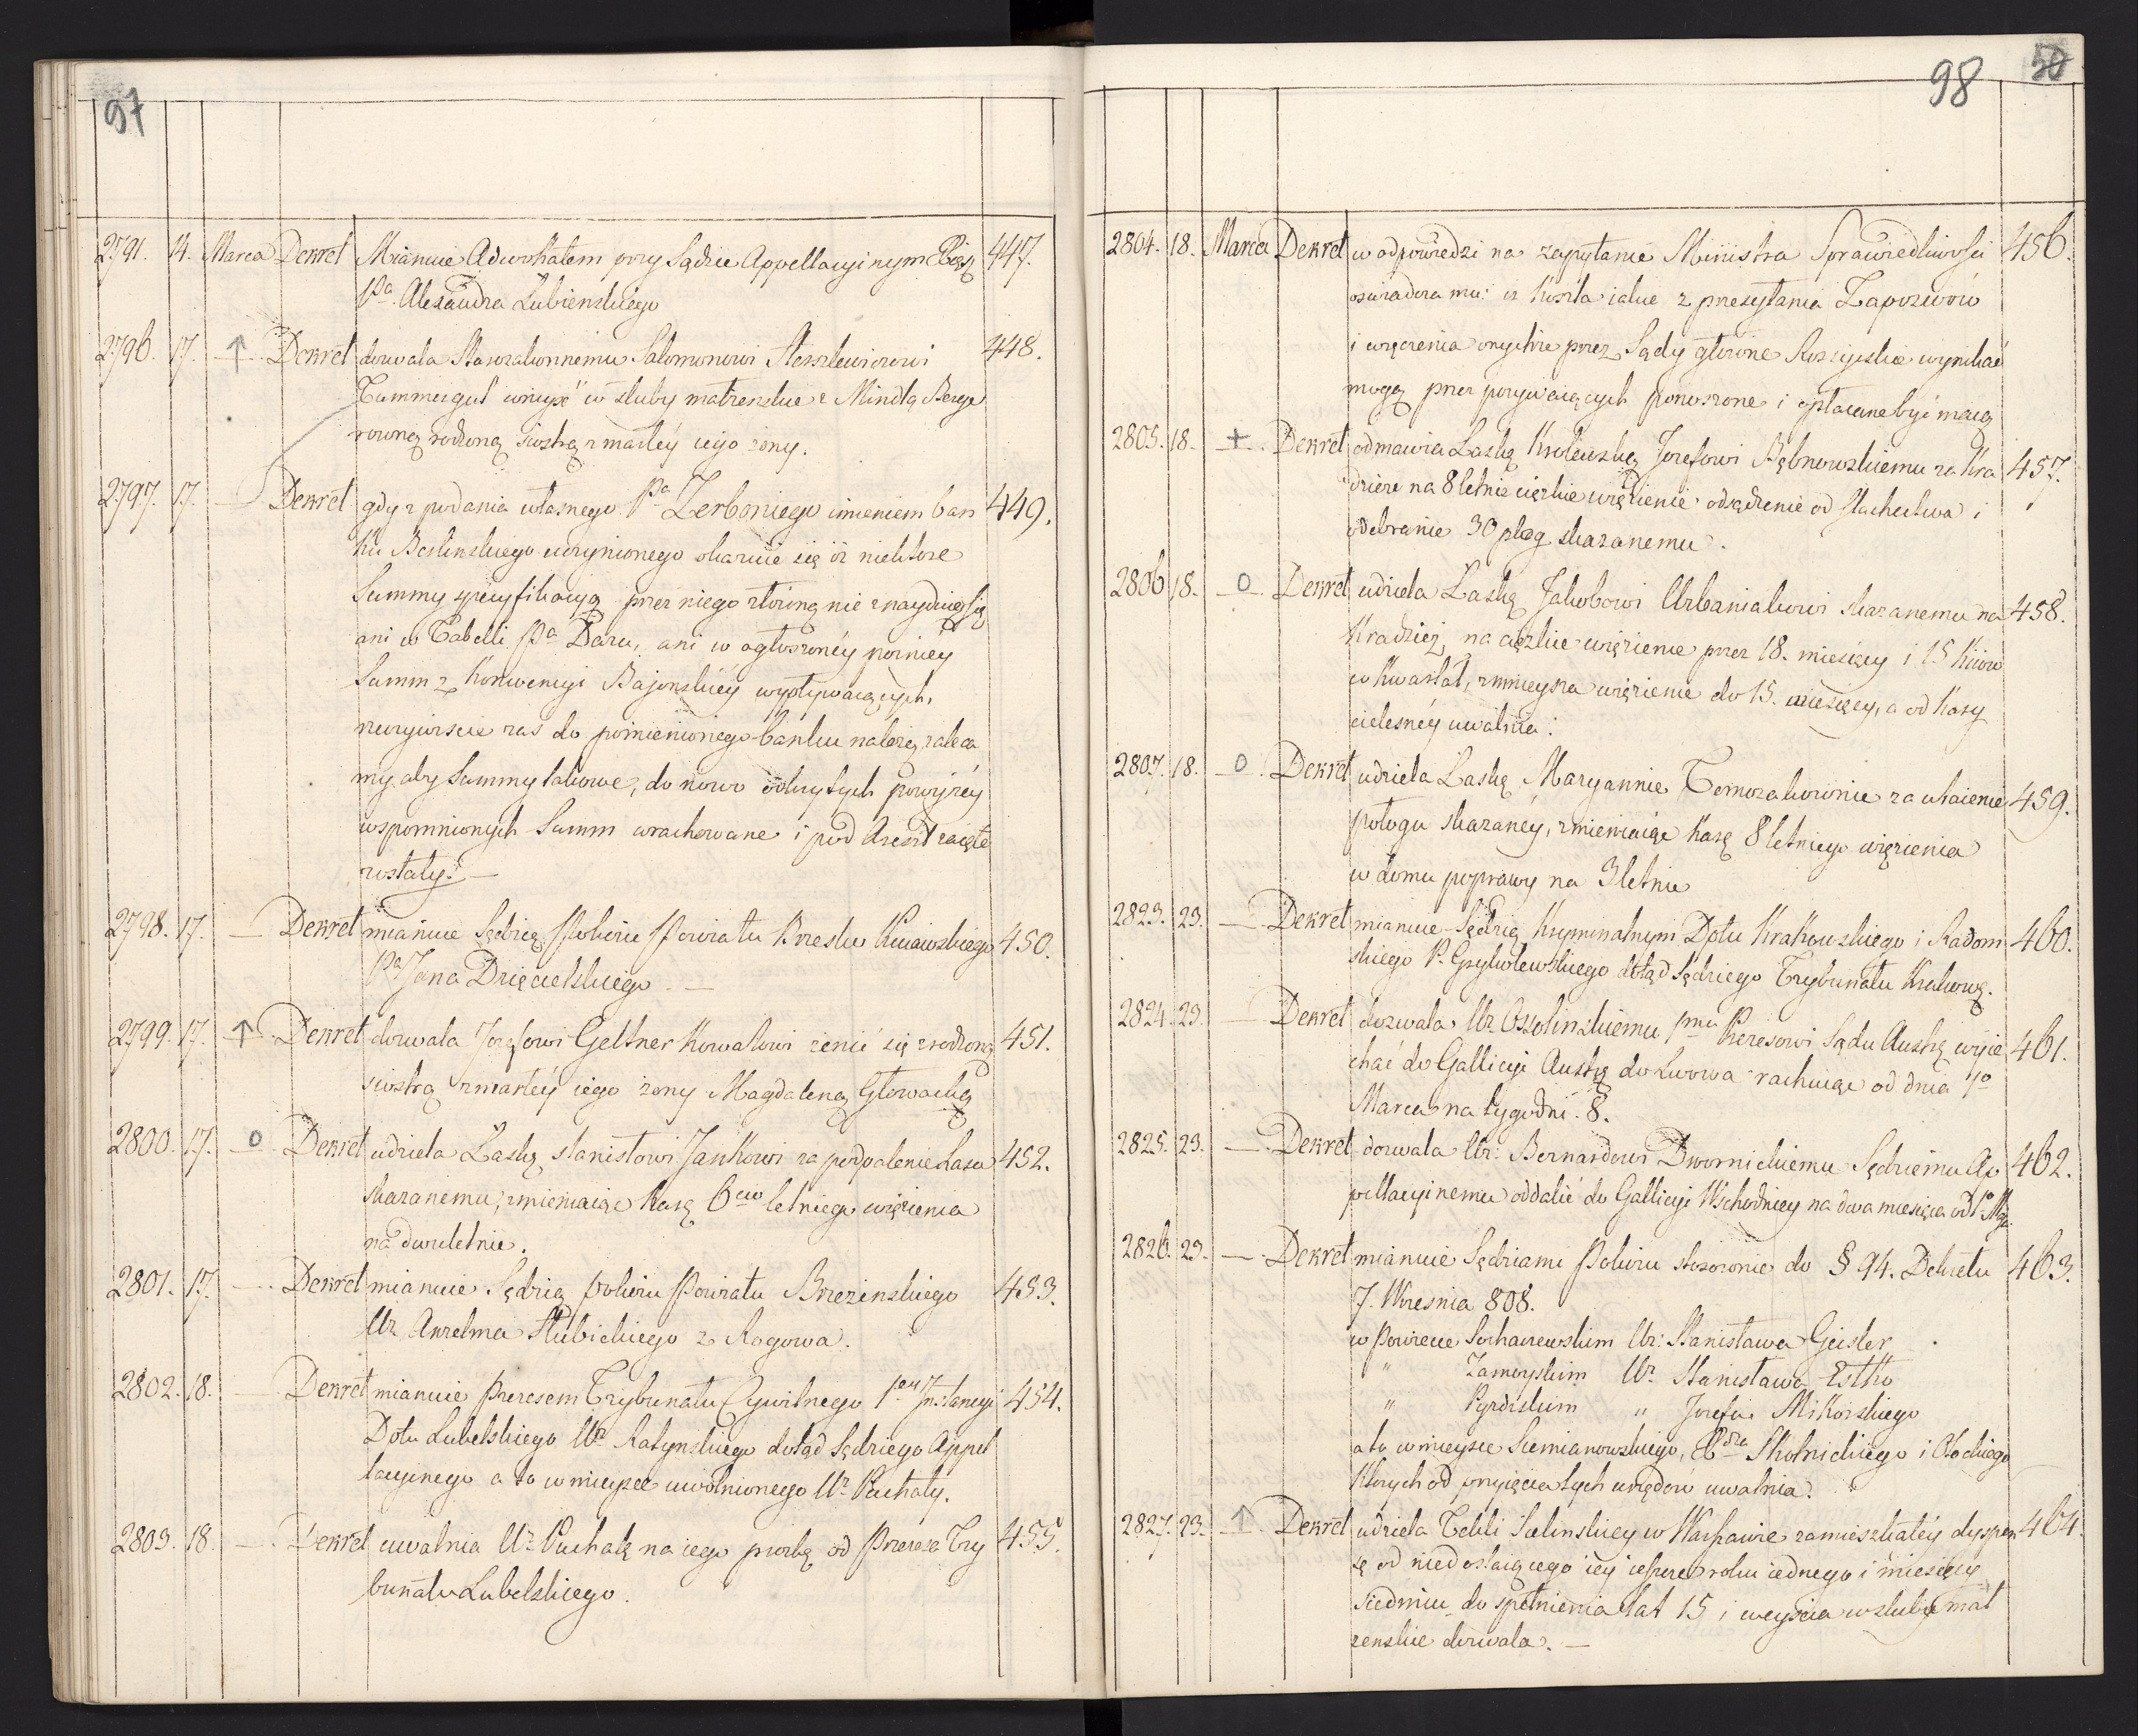 97
2791. 14. Marca Dekret Mianuie Adwokatem przy Sądzie Appellacyinym 447.
Pa Alexandra Lubienskiego
2796. 17. ↑ Dekret dozwala Starozakonnemu Salomonowi 448.
wniyść w śluby małżenskie z Mindlą Berge
rowną rodzoną siostrą zmarłéy iego żony.
2797. 17. Dekret gdy z podania własnego Pa Zerboniego imieniem ban 449.
ku Berlinskiego uczynionego okazuie się iż niektore
Summy specyfikacyą przez niego złożoną nie znayduią się
ani w Tabelli Pa Daru, ani w ogłoszonéy poźniéy
Summ z Konwencyi Bajonskiéy wypływaiących,
rzeczywiscie zas do pomienionego banku należą, zaleca
my aby Summy takowe, do nowo odkrytych powyżéy
wspomnionych Summ wrachowane i pod Areszt zaięte
zostały. —
2798. 17. — Dekret mianuie Sędzią Pokoiu Powiatu Brzesko Kuiawskiego 450.
Pa Jana Dzięcielskiego —
2799. 17. ↑ Dekret dozwala Jozefowi Geltner Kowalowi żenić się z rodzoną 451.
siostrą zmarłéy iego żony Magdaleną Głowacką
2800. 17. O Dekret udziela Łaskę Stanisłowi Jankowi za podpalenie Lasu 452.
skazanemu, zmieniaiąc karę 6cio letniego więzienia
na dwuletnie.
2801. 17. — Dekret mianuie Sędzią pokoiu Powiatu Brzezinskiego 453.
Ur. Anzelma Słubickiego z Rogowa.
2802. 18. — Dekret mianuie Prezesem Trybunału Cywilnego 1ey Instancyi 454.
Dptu Lubelskiego Ur Ratynskiego dotąd Sędziego Appel
lacyinego a to w mieysce uwolnionego Ur. Puchały.
2803. 18. — Dekret uwalnia Ur. Puchałę na iego prozbę od Prezesa Try 455.
bunału Lubelskiego.
98 50
2804. 18. Marca Dekret w odpowiedzi na zapytanie Ministra Sprawiedliwości 456.
oswiadcza mu: iż Koszta iakie z przesyłania Zapozwów
i wręczenia onychże przez Sądy główne Rossyiskie wynikać
mogą przez pozywaiących ponoszone i opłacane być maią
2805. 18. + Dekret odmawia Łaskę Krolewską Jozefowi Bębnowskiemu za Kra 457.
dzieże na 8 letnie ciężkie więzienie odsądzenie od Slachectwa i
odebranie 30 plag skazanemu.
2806 18. O Dekret udziela Łaskę Jakobowi Urbaniakowi skazanemu na 458.
Kradzież, na ciężkie więzienie przez 18. miesięcy i 15 Kiiów
w Kwartał, zmnieysza więzienie do 15. miesięcy, a od Kary
cielesnéy uwalnia.
2807. 18. O Dekret udziela Łaskę Maryannie Tomozakownie za utaienie 459.
połogu skazanéy, zmieniaiąc Karę 8 letniego więzienia
w domu poprawy na 3 letnie
2823. 23. — Dekret mianuie Sędzią Kryminalnym Dptu Krakowskiego i Radom 460.
skiego P. Grzybolewskiego dotąd Sędziego Trybunału Krakows.
2824. 23. — Dekret dozwala Ur. Ossolinskiemu 1mu Prezesowi Sądu wyie 461.
chać do Gallicyi Austrą do Lwowa rachuiąc od dnia 7o
Marca na tygodni 8.
2825. 23. — Dekret dozwala Ur. Bernardowi Dwornickiemu Sędziemu Ap 462.
pellacyinemu oddalić do Gallicyi Wschodniey na dwa miesiąca od 1o Maja
2826. 23. — Dekret mianuie Sędziami Pokoiu stosownie do § 94. Dekretu 463.
7. Wrzesnia 808.
w Powiecie Sochaczewskim Ur: Stanisława Geisler
" Zamoyskim Ur. Stanisława Estko
" Pyzdrskim " Jozefa Mikorskiego
a to w mieysce Siemianowskiego, Skotnickiego i
Których od przyięcia tych urzędów uwalnia.
2827. 23. ↑ Dekret udziela Tekli Sielinskiey w Warszawie zamieszkałéy dyspen 464.
sę od niedostaiącego iéy ieszcze roku iednego i miesięcy
siedmiu do spełnienia lat 15 i weyscia w śluby mał
żenskie dozwala. —